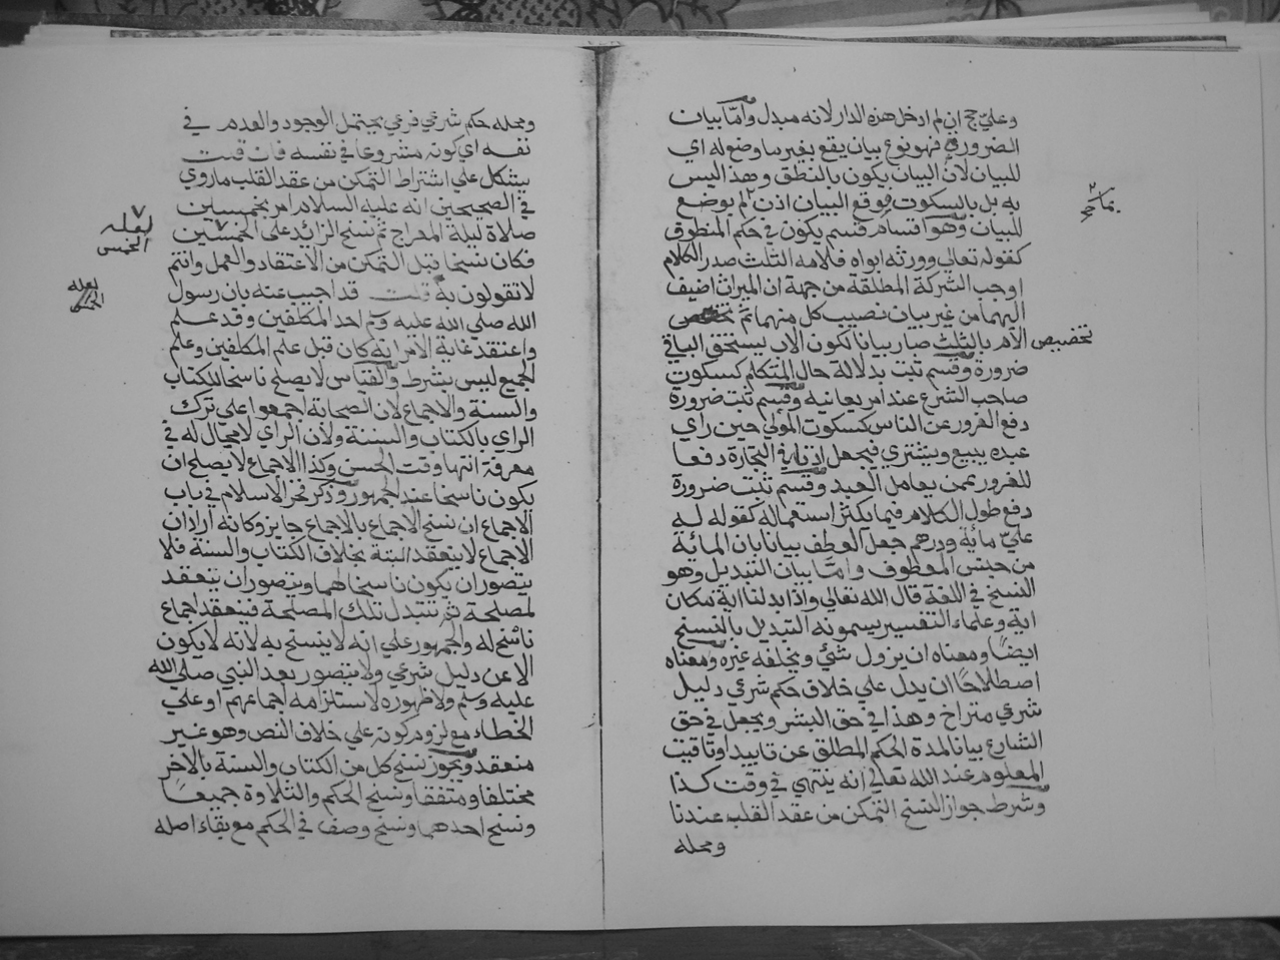 وعليّ حج ان لم ادخل هذه الدار لانه مبدل وامّا بيان
الضرورة فهو نوع بيان يقع بغير ما وضع له اي
للبيان لانّ البيان يكون بالنطق وهذا ليس
به بل بالسكوت فوقع البيان اذن لم يوضع
للبيان وهو اقسام قسم يكون في حكم المنطوق
كقوله تعالي وورثه ابواه فلامه الثلث صدر الكلام
اوجب الشركة المطلقة من جهة ان الميراث اضيف
اليهما من غير بيان نصيب كل منهما ثمّ تخصيص
تخصيص
الام بالثلث صار بيانا لكون الاب يستحق الباقي
ضرورة وقسم ثبت بدلالة حال المتكلم كسكوت
صاحب الشرع عند امر يعاينه وقسم ثبت ضرورة
دفع الغرور عن الناس كسكوت المولي حين راي
عبده يبيع ويشتري فيجعل اذنا في التجارة دفعا
للغرور عمن يعامل العبد وقسم ثبت ضرورة
دفع طول الكلام فيما يكثر استعماله كقوله له
عليّ مائة ودرهم جعل العطف بيانا بان المائة
من جنس المعطوف وامّا بيان التبديل وهو
النسخ في اللغة قال الله تعالي واذا بدلنا اية مكان
اية وعلماء التفسير يسمونه التبديل بالنسخ
ايضا ومعناه ان يزول شئ ويخلفه غيره ومعناه
اصطلاحًا ان يدل علي خلاف حكم شرعي دليل
شرعي متراخ وهذا في حق البشر ويجعل في حق
الشارع بيانا لمدة الحكم المطلق عن تابيد او تاقيت
المعلوم عند الله تعالي انه ينتهي في وقت كذا
وشرط جواز النسخ التمكن من عقد القلب عندنا
ومحله
ومحله حكم شرعي فرعي يحتمل الوجود والعدم في
نفسه اي كونه مشروعا في نفسه فان قلت
يشكل علي اشتراط التمكن من عقد القلب ما روي
في الصحيحين انه عليه السلام امر بخمسين
صلاة ليلة المعراج ثم نسخ الزائد علي الخمسين
لعله
الخمس
فكان نسخا قبل التمكن من الاعتقاد والعمل وانتم
لا تقولون به قلت قد اجيب عنه بان رسول
الله صلي الله عليه وسم احد المكلفين وقد علم
واعتقد غاية الامر انه كان قبل علم المكلفين وعلم
الجميع ليس بشرط والقياس لا يصلح ناسخا للكتاب
والسنة والاجماع لان الصحابة اجمعوا علي ترك
الراي بالكتاب والسنة ولان الراي لا مجال له في
معرفة انتها وقت الحسن وكذا الاجماع لا يصلح ان
يكون ناسخا عند الجمهور وذكر فخر الاسلام في باب
الاجماع ان نسخ الاجماع بالاجماع جايز وكانه اراد ان
الاجماع لا ينعقد البتة بخلاف الكتاب والسنة فلا
يتصور ان يكون ناسخا لهما ويتصور ان ينعقد
لمصلحة ثم تتبدل تلك المصلحة فينعقد اجماع
ناسخ له والجمهور علي انه لا ينسخ به لانه لا يكون
الا عن دليل شرعي ولا يتصور بعد النبي صلي الله
عليه وسلم ولا ظهوره لاستلزامه اجماعهم او علي
الخطاء مع لزوم كونه علي خلاف النص وهو غير
منعقد ويجوز نسخ كل من الكتاب والسنة بالآخر
مختلفا ومتفقا ونسخ الحكم والتلاوة جميعًا
ونسخ احدهما ونسخ وصف في الحكم مع بقاء اصله